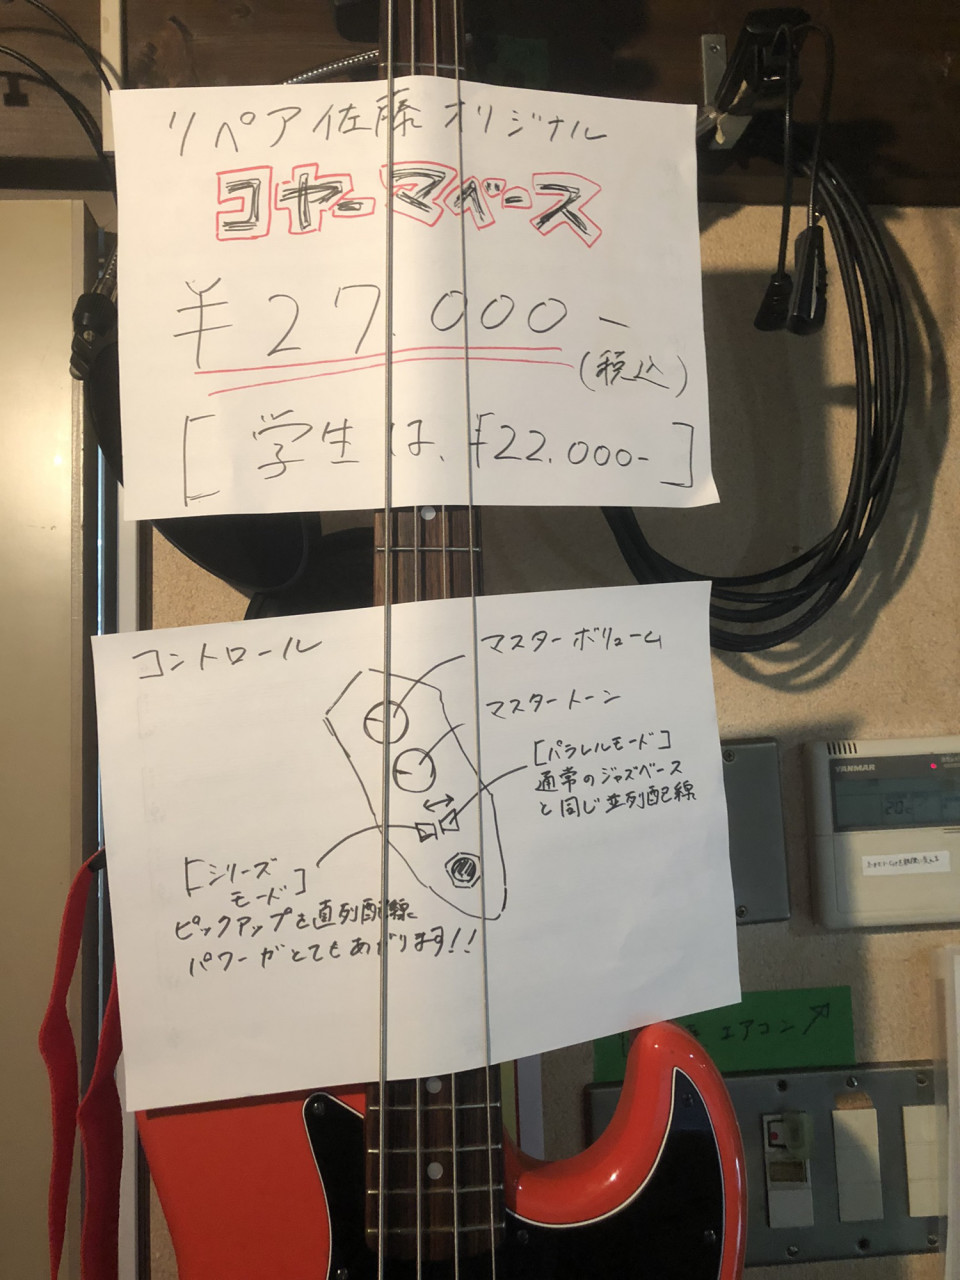 リペア佐藤 オリジナル
コヤーマベース
¥27.000-
(税込)
[学生は、¥22.000-]
コントロール
マスターボリューム
マスタートーン
[パラレルモード]
通常のジャズベース
と同じ並列配線
[シリーズ
モード]
ピックアップを直列配線。
パワーがとてもあがります!!
YANMAR
20℃
エアコン